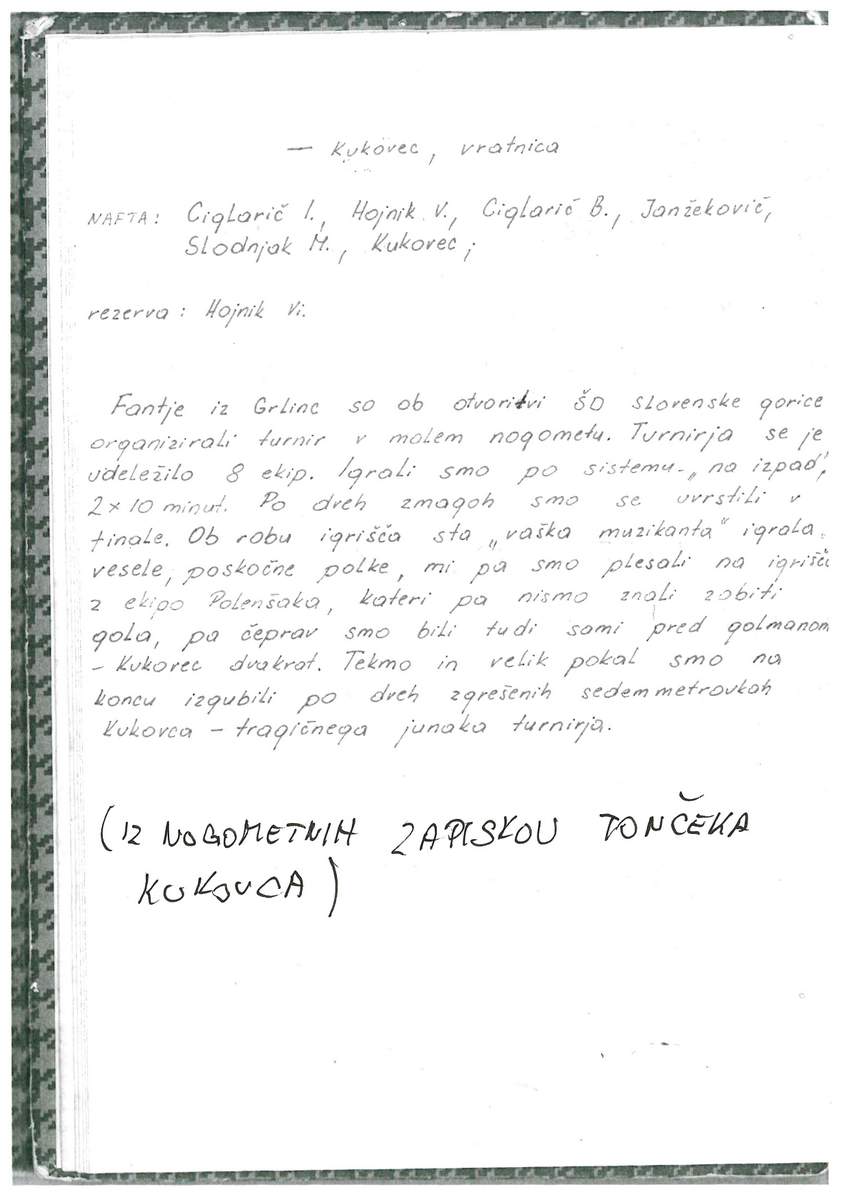 — Kukovec, vratnica
NAFTA: Ciglarič I., Hojnik V., Ciglarič B., Janžekovič,
Slodnjak M., Kukovec;
rezerva: Hojnik Vi.
Fantje iz Grlinc so ob otvoritvi ŠD slovenske gorice
organizirali turnir v malem nogometu. Turnirja se je
udeležilo 8 ekip. Igrali smo po sistemu - „na izpad",
2 × 10 minut. Po dveh zmagah smo se uvrstili v
finale. Ob robu igrišča sta „vaška muzikanta" igrala
vesele, poskočne polke, mi pa smo plesali na igrišču
z ekipo Polenšaka, kateri pa nismo znali zabiti
gola, pa čeprav smo bili tudi sami pred golmanom
- Kukovec dvakrat. Tekmo in velik pokal smo na
koncu izgubili po dveh zgrešenih sedemmetrovkah
Kukovca - tragičnega junaka turnirja.
(IZ NOGOMETNIH ZAPISKOV TONČEKA
KUKOVCA)